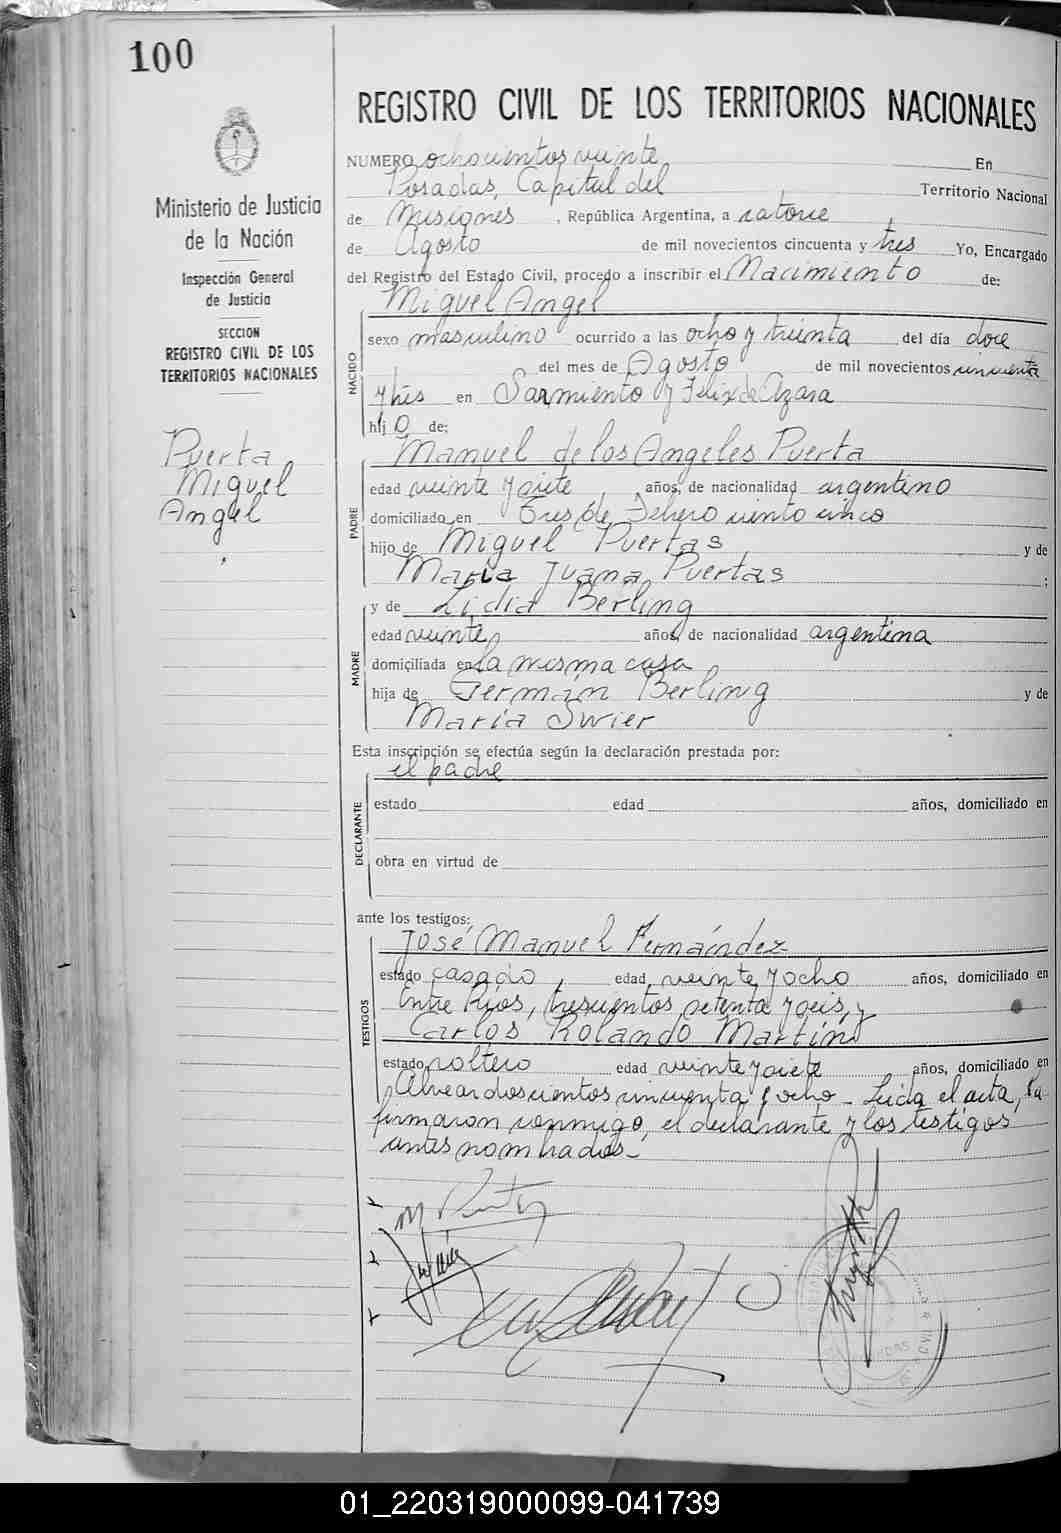 100
Ministerio de Justicia
de la Nación
Inspección General
de Justicia
SECCION
REGISTRO CIVIL DE LOS
TERRITORIOS NACIONALES
Puerta
Miguel
Angel
REGISTRO CIVIL DE LOS TERRITORIOS NACIONALES
NUMERO ochocientos veinte En
Posadas, Capital del Territorio Nacional
de Misiones , República Argentina, a catorce
de Agosto de mil novecientos cincuenta y tres Yo, Encargado
del Registro del Estado Civil, procedo a inscribir el Nacimiento de:
Miguel Angel
NACIDO
sexo masculino ocurrido a las ocho y treinta del día doce
del mes de Agosto de mil novecientos cincuenta
y tres en Sarmiento y Felix de Azara
hijo de:
Manuel de los Angeles Puerta
PADRE
edad veinte y siete años, de nacionalidad argentino
domiciliado en Tres de Febrero ciento cinco
hijo de Miguel Puertas y de
María Juana Puertas ;
y de Lidia Berling
MADRE
edad veinte años, de nacionalidad argentina
domiciliada en la misma casa
hija de Germán Berling y de
María Swier
Esta inscripción se efectúa según la declaración prestada por:
el padre
DECLARANTE
estado edad años, domiciliado en
obra en virtud de
ante los testigos:
José Manuel Fernández
TESTIGOS
estado casado, edad veinte y ocho años, domiciliado en
Entre Ríos, trescientos setenta y seis, y
Carlos Rolando Martín
estado soltero edad veinte y siete años, domiciliado en
Alvear doscientos cincuenta y ocho - Leida el acta, la
firmaron conmigo, el declarante y los testigos
antes nombrados -
M Puerta
01_220319000099-041739